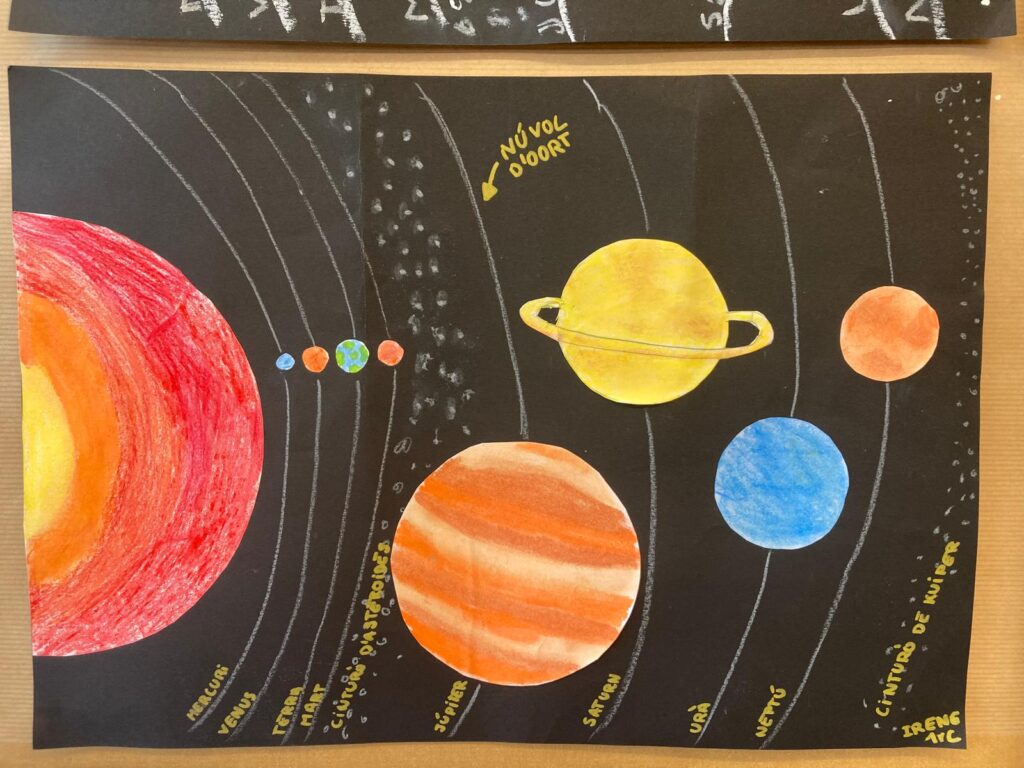 NÚVOL
D'OORT
MERCURI
VENUS
TERRA
MART
CINTURÓ D'ASTEROIDES
JÚPITER
SATURN
URÀ
NEPTÚ
CINTURÓ DE KUIPER
IRENE
1rC